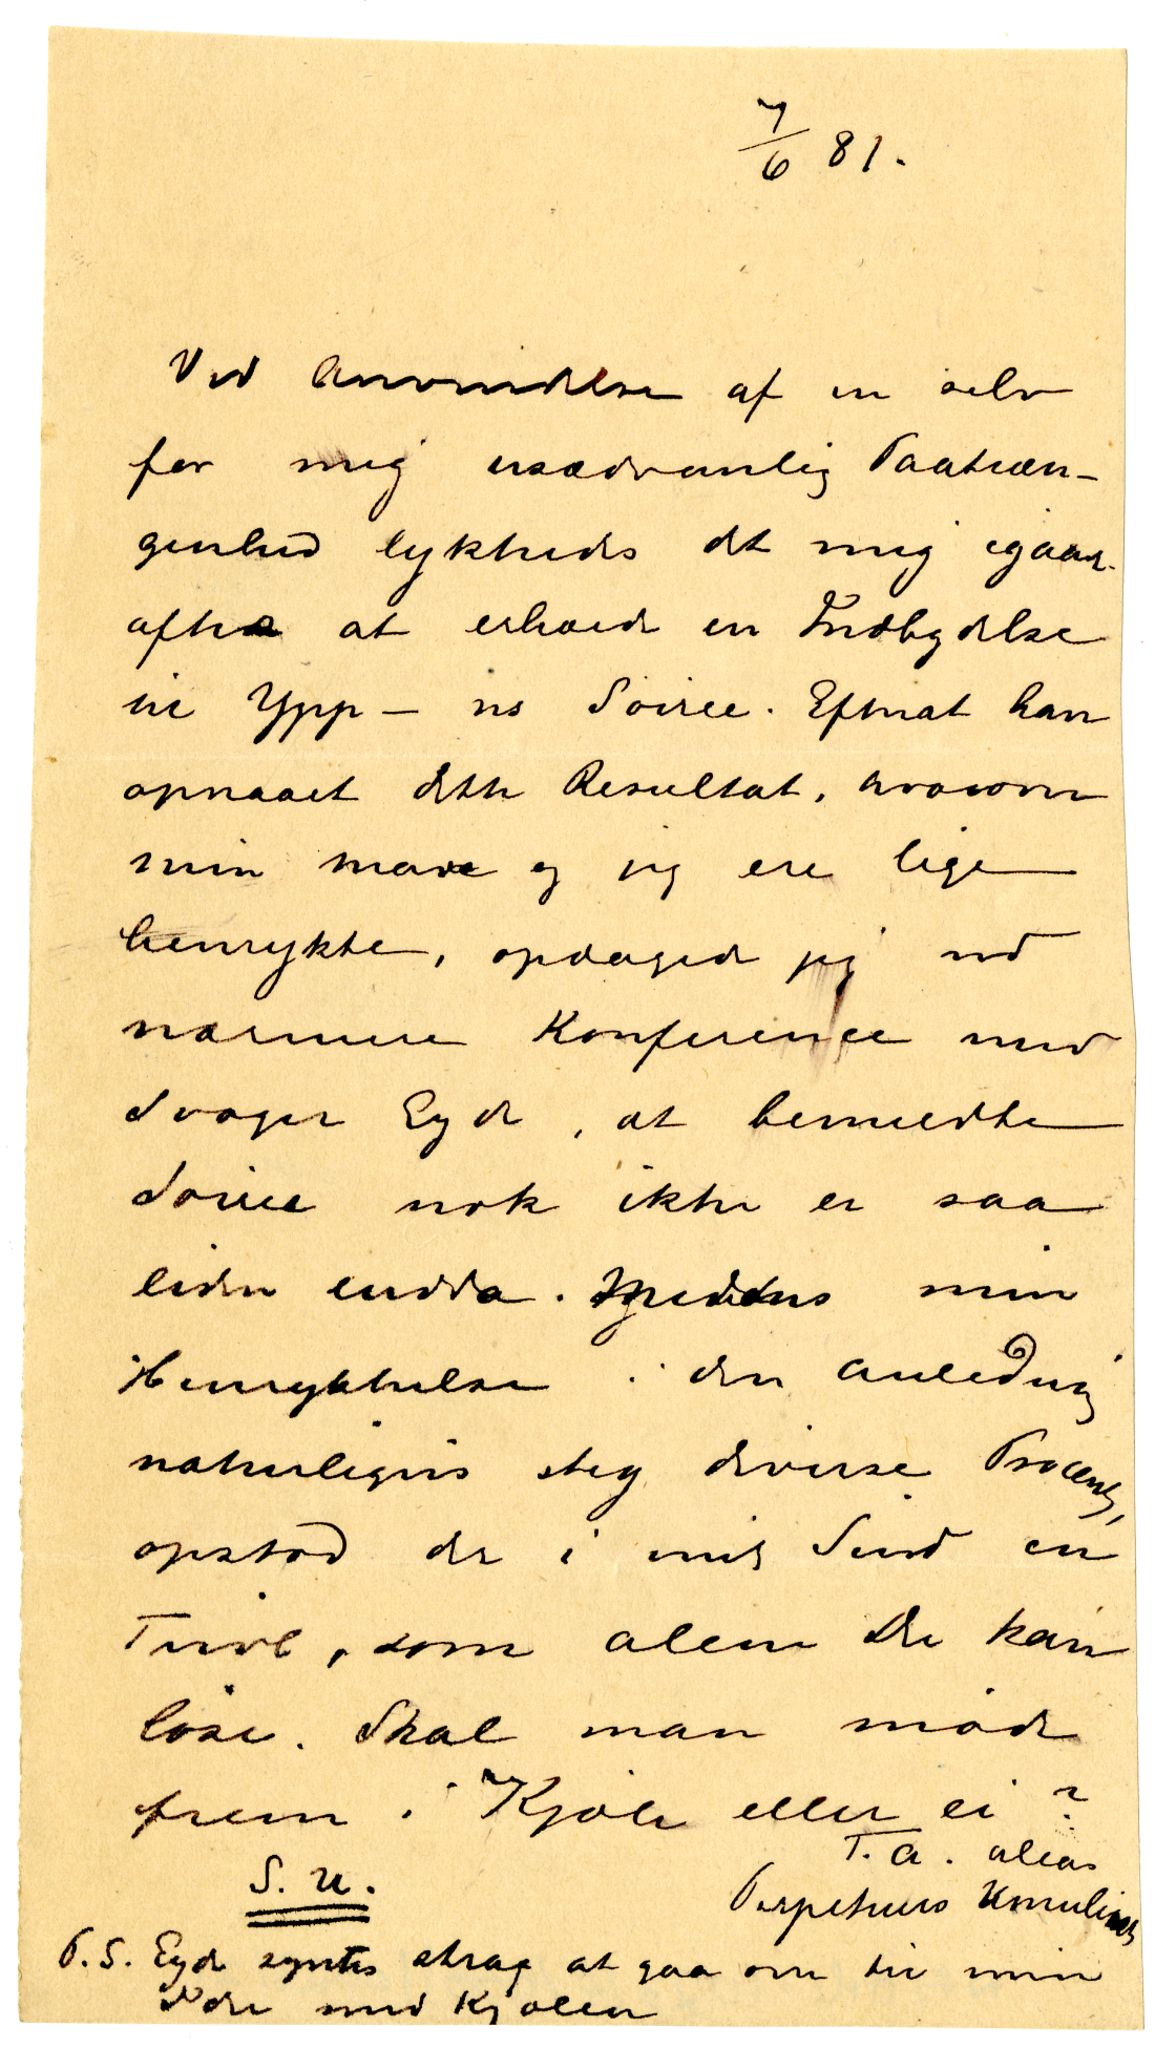 7/6 81.
Ved Anvendelse af en selv
for mig usædvanlig Paatræn-
genhed lykkedes det mig igaar-
aftes at erhverde en Indbydelse
til Ypp – ns Soiree. Efterat have
opnaaet dette Resultat, hvorover
min mave og jeg ere lige
henrykte, opdaged jeg ved
nærmere Konference med
Svoger Eyde, at bemeldte
Soiree nok ikke er saa
liden endda. Medens min
Henrykkelse i den Anledning
naturligvis steg diverse Procent,
opstod der i mit Sind en
Tvivl, som alene De kan
løse. Skal man møde
frem i Kjole eller ei?
T. A. alias
Perpetuus
S. U.
P. S. Eyde syntes strax at gaa over til min
Side med Kjolen